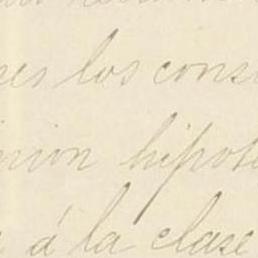 es los cons
nion hipote
á la clase